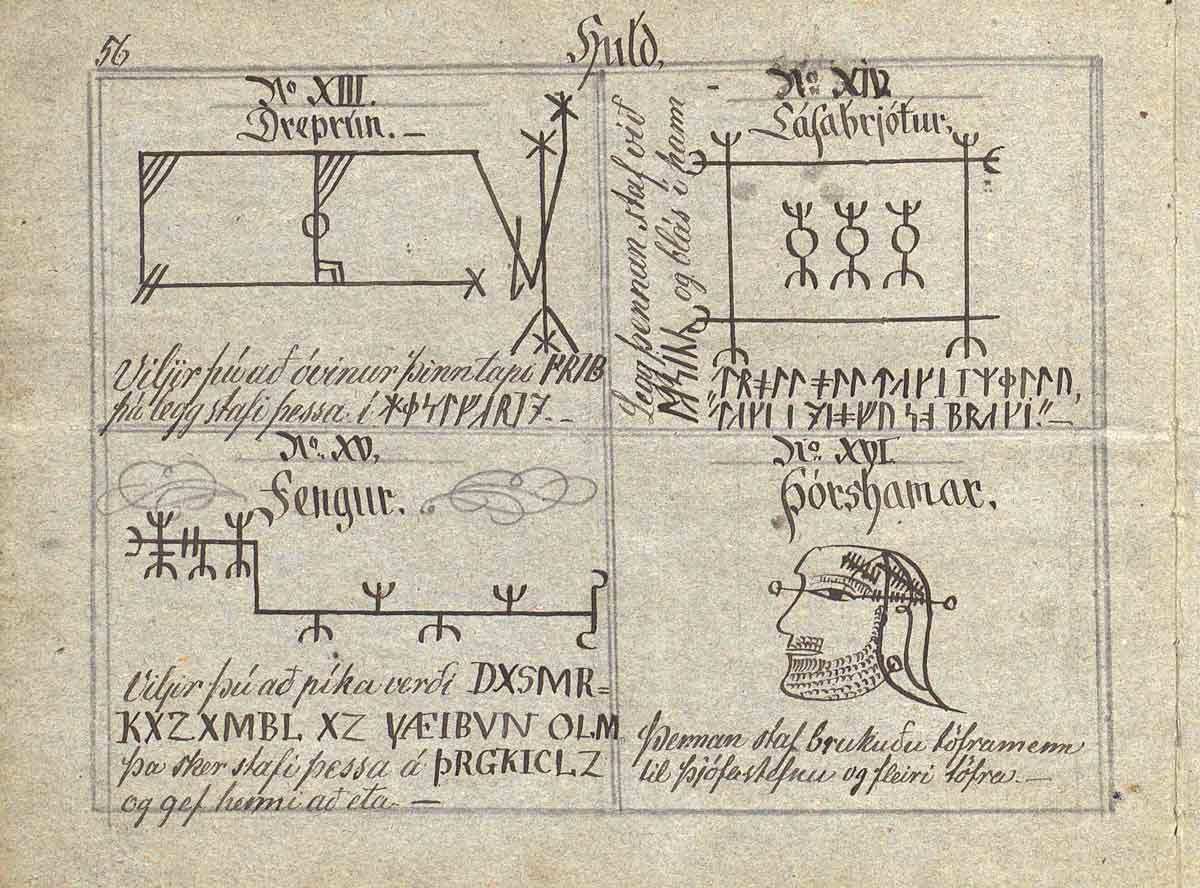 56
Huld,
No XIII.
Dreprún.—
Viljir þú að óvinur þinn tapi
þá legg stafi þessa í
No XIV.
Lásabrjótur,
Legg þennan staf við
og blás í hann
No XV,
Fengur.
Viljir þú að píka verði DXSMR=
KXZ XMBL XZ YÆIBVN OLM
þa sker stafi þessa á ÞRGKICLZ
og gef henni að eta.—
No XVI.
Þórshamar.
Þennan staf brukuðu töframenn
til þjófastefnu og fleiri töfra.—